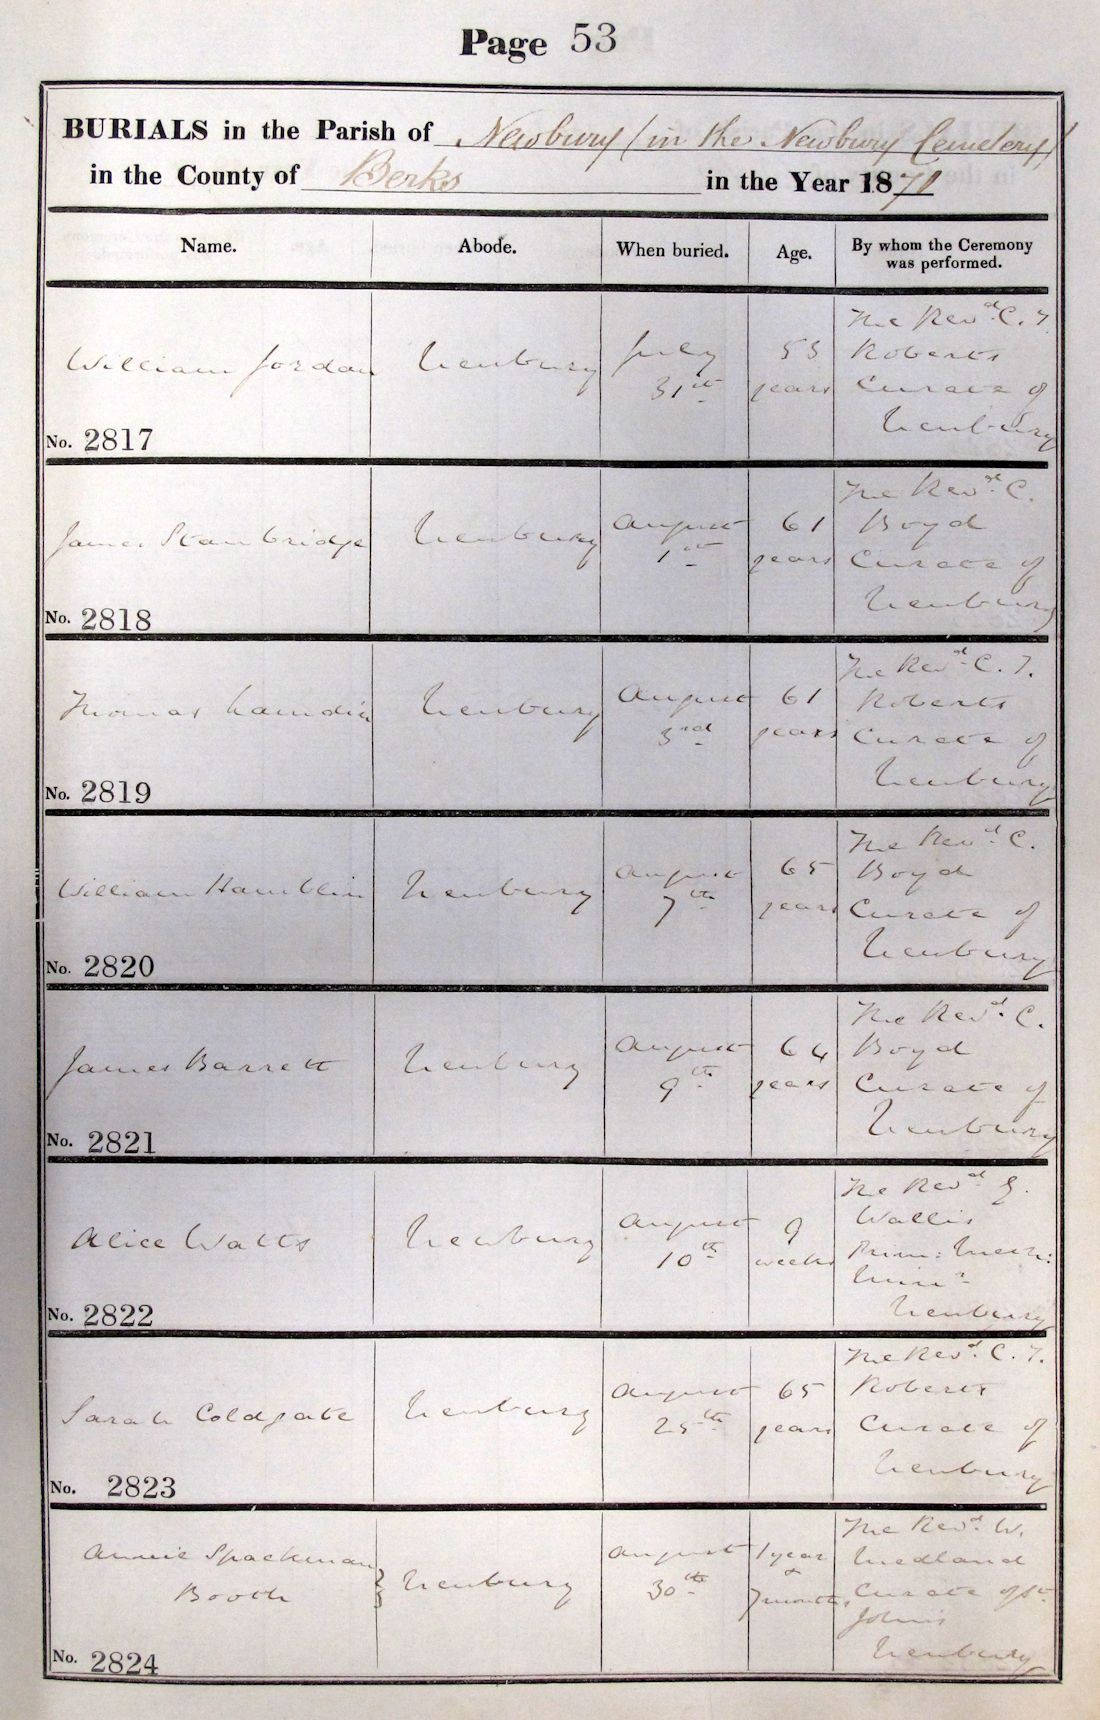 Page 53
BURIALS in the Parish of Newbury (in the Newbury Cemetery)
in the County of Berks in the Year 1871
Name. Abode. When buried. Age. By whom the Ceremony
was performed.
William Jordan Newbury July
31st 53
years The Revd. C. T.
Roberts
Curate of
Newbury
No. 2817
James Stanbridge Newbury August
1st 61
years The Revd. C.
Boyd
Curate of
Newbury
No. 2818
Thomas Newbury August
3rd 61
years The Revd. C. T.
Roberts
Curate of
Newbury
No. 2819
William Hamblin Newbury August
7th 65
years The Revd. C.
Boyd
Curate of
Newbury
No. 2820
James Barrett Newbury August
9th 64
years The Revd. C.
Boyd
Curate of
Newbury
No. 2821
Alice Watts Newbury August
10th 9
weeks The Revd
Wallis
Prim: Meth:
Minr.
Newbury
No. 2822
Sarah Coldgate Newbury August
25th 65
years The Revd. C. T.
Roberts
Curate of
Newbury
No. 2823
Annie Spackman
Booth Newbury August
30th 1 year
&
7 months The Revd. W.
Medland
Curate of St
John's
Newbury
No. 2824